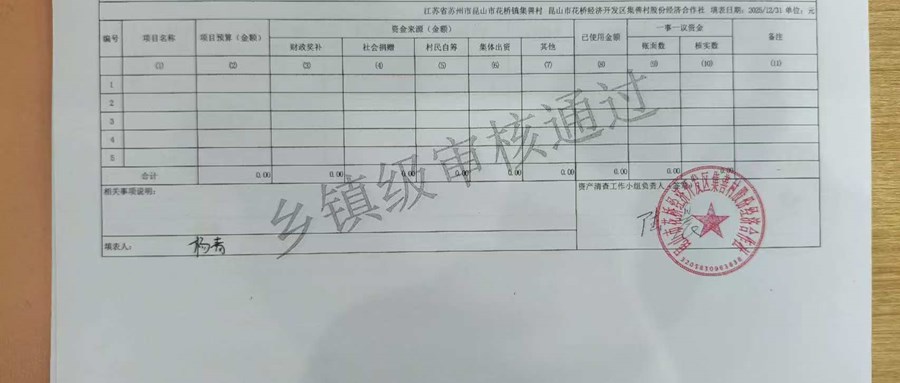 江苏省苏州市昆山市花桥镇集善村 昆山市花桥经济开发区集善村股份经济合作社 填表日期：2025/12/31 单位：元
编号 项目名称 项目预算（金额） 资金来源（金额） 已使用金额 一事一议资金 备注
财政奖补 社会捐赠 村民自筹 集体出资 其他 账面数 核实数
(1) (2) (3) (4) (5) (6) (7) (8) (9) (10) (11)
1
2
3
4
5
合计 0.00 0.00 0.00 0.00 0.00 0.00 0.00 0.00 0.00
相关事项说明：
资产清查工作小组负责人
填表人： 杨青
乡镇级审核通过
昆山市花桥经济开发区集善村股份经济合作社